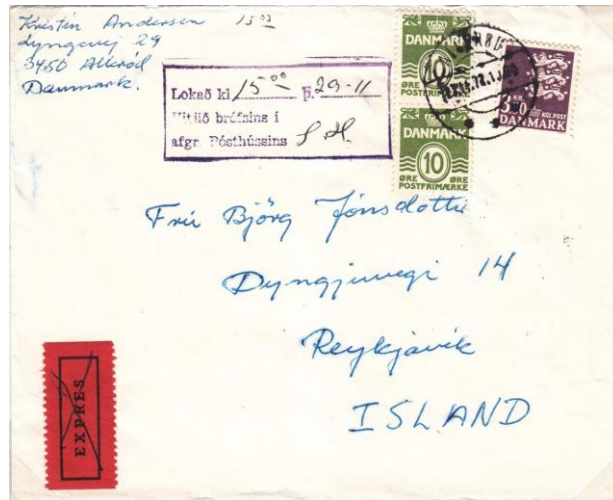 Kristín Andersen 15 03
Lyngevej 29
3450 Allerød
Danmark.
Lokað kl 15 00 Þ. 29-11
Vitjið bréfsins í
afgr. Pósthússins S.H.
DANMARK
10
ØRE ØRE
POSTFRIMÆRKE
DANMARK
10
ØRE ØRE
POSTFRIMÆRKE
3.50
KGL POST
DANMARK
Frú Björg Jónsdóttir
Dyngjuvegi 14
Reykjavík
ISLAND
EXPRES